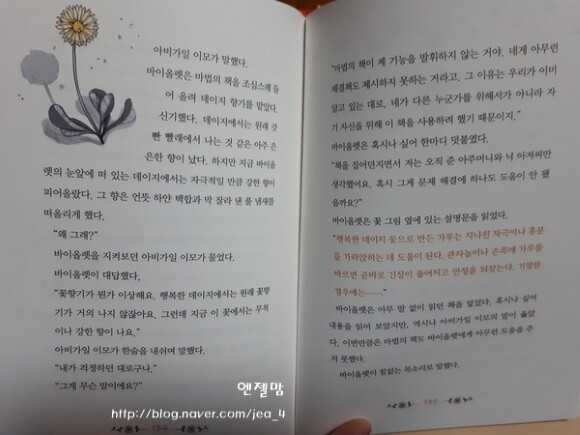 아비가일 이모가 말했다.
바이올렛은 마법의 책을 조심스레 들
어 올려 데이지 향기를 맡았다.
신기했다. 데이지에서는 원래 갓
빤 빨래에서 나는 것 같은 아주 은
은한 향이 났다. 하지만 지금 바이올
렛의 눈앞에 떠 있는 데이지에서는 자극적일 만큼 강한 향이
피어올랐다. 그 향은 언뜻 하얀 백합과 막 잘라 낸 풀 냄새를
떠올리게 했다.
"왜 그래?"
바이올렛을 지켜보던 아비가일 이모가 물었다.
바이올렛이 대답했다.
"꽃향기가 뭔가 이상해요. 행복한 데이지에서는 원래 꽃향
기가 거의 나지 않잖아요. 그런데 지금 이 꽃에서는 무척
이나 강한 향이 나요."
아비가일 이모가 한숨을 내쉬며 말했다.
"내가 걱정하던 대로구나."
"그게 무슨 말이에요?"
134
"마법의 책이 제 기능을 발휘하지 않는 거야. 네게 아무런
해결책도 제시하지 못하는 거라고. 그 이유는 우리가 이미
알고 있는 대로, 네가 다른 누군가를 위해서가 아니라 자
기 자신을 위해 이 책을 사용하려 했기 때문이지."
바이올렛은 혹시나 싶어 한마디 덧붙였다.
"책을 짊어던지면서 저는 오직 준 아주머니와 닉 아저씨만
생각했어요. 혹시 그게 문제 해결에 하나도 도움이 안 됐
을까요?"
바이올렛은 꽃 그림 옆에 있는 설명문을 읽었다.
"행복한 데이지 꽃으로 만든 가루는 지나친 자극이나 흥분
을 가라앉히는 데 도움이 된다. 관자놀이나 손목에 가루를
바르면 곧바로 긴장이 풀어지고 안정을 되찾는다. 기절한
경우에는……."
바이올렛은 아무 말 없이 읽던 책을 덮었다. 혹시나 싶어
내용을 읽어 보았지만, 역시나 아비가일 이모의 말이 옳았
다. 이번만큼은 마법의 책도 바이올렛에게 아무런 도움을 주
지 못했다.
바이올렛이 힘없는 목소리로 말했다.
135
엔젤맘
http://blog.naver.com/jea_4